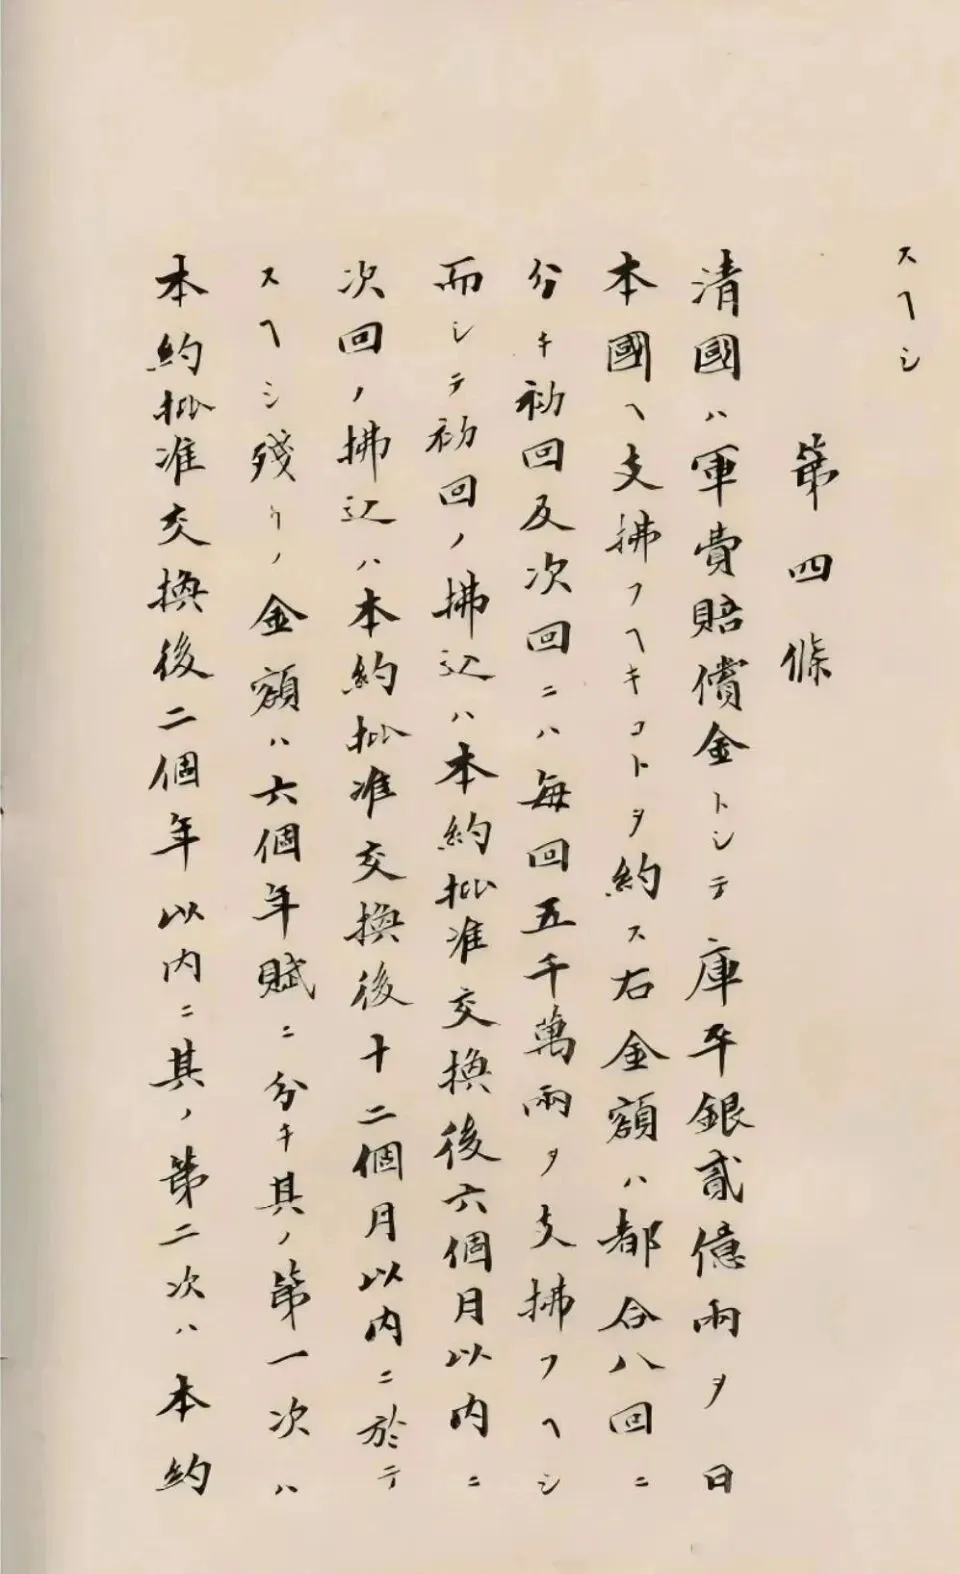 スヘシ
第四條
清國ハ軍費賠償金トシテ庫平銀貳億兩ヲ日
本國ヘ支拂フヘキコトヲ約ス右金額ハ都合八回ニ
分チ初回及次回ニハ每回五千萬兩ヲ支拂フヘシ
而シテ初回ノ拂込ハ本約批准交換後六個月以内ニ
次回ノ拂込ハ本約批准交換後十二個月以内ニ於テ
スヘシ殘リノ金額ハ六個年賦ニ分チ其ノ第一次ハ
本約批准交換後二個年以内ニ其ノ第二次ハ本約